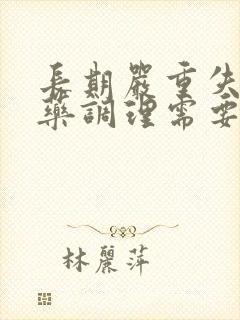 長期嚴重失
藥調理需要
林麗萍